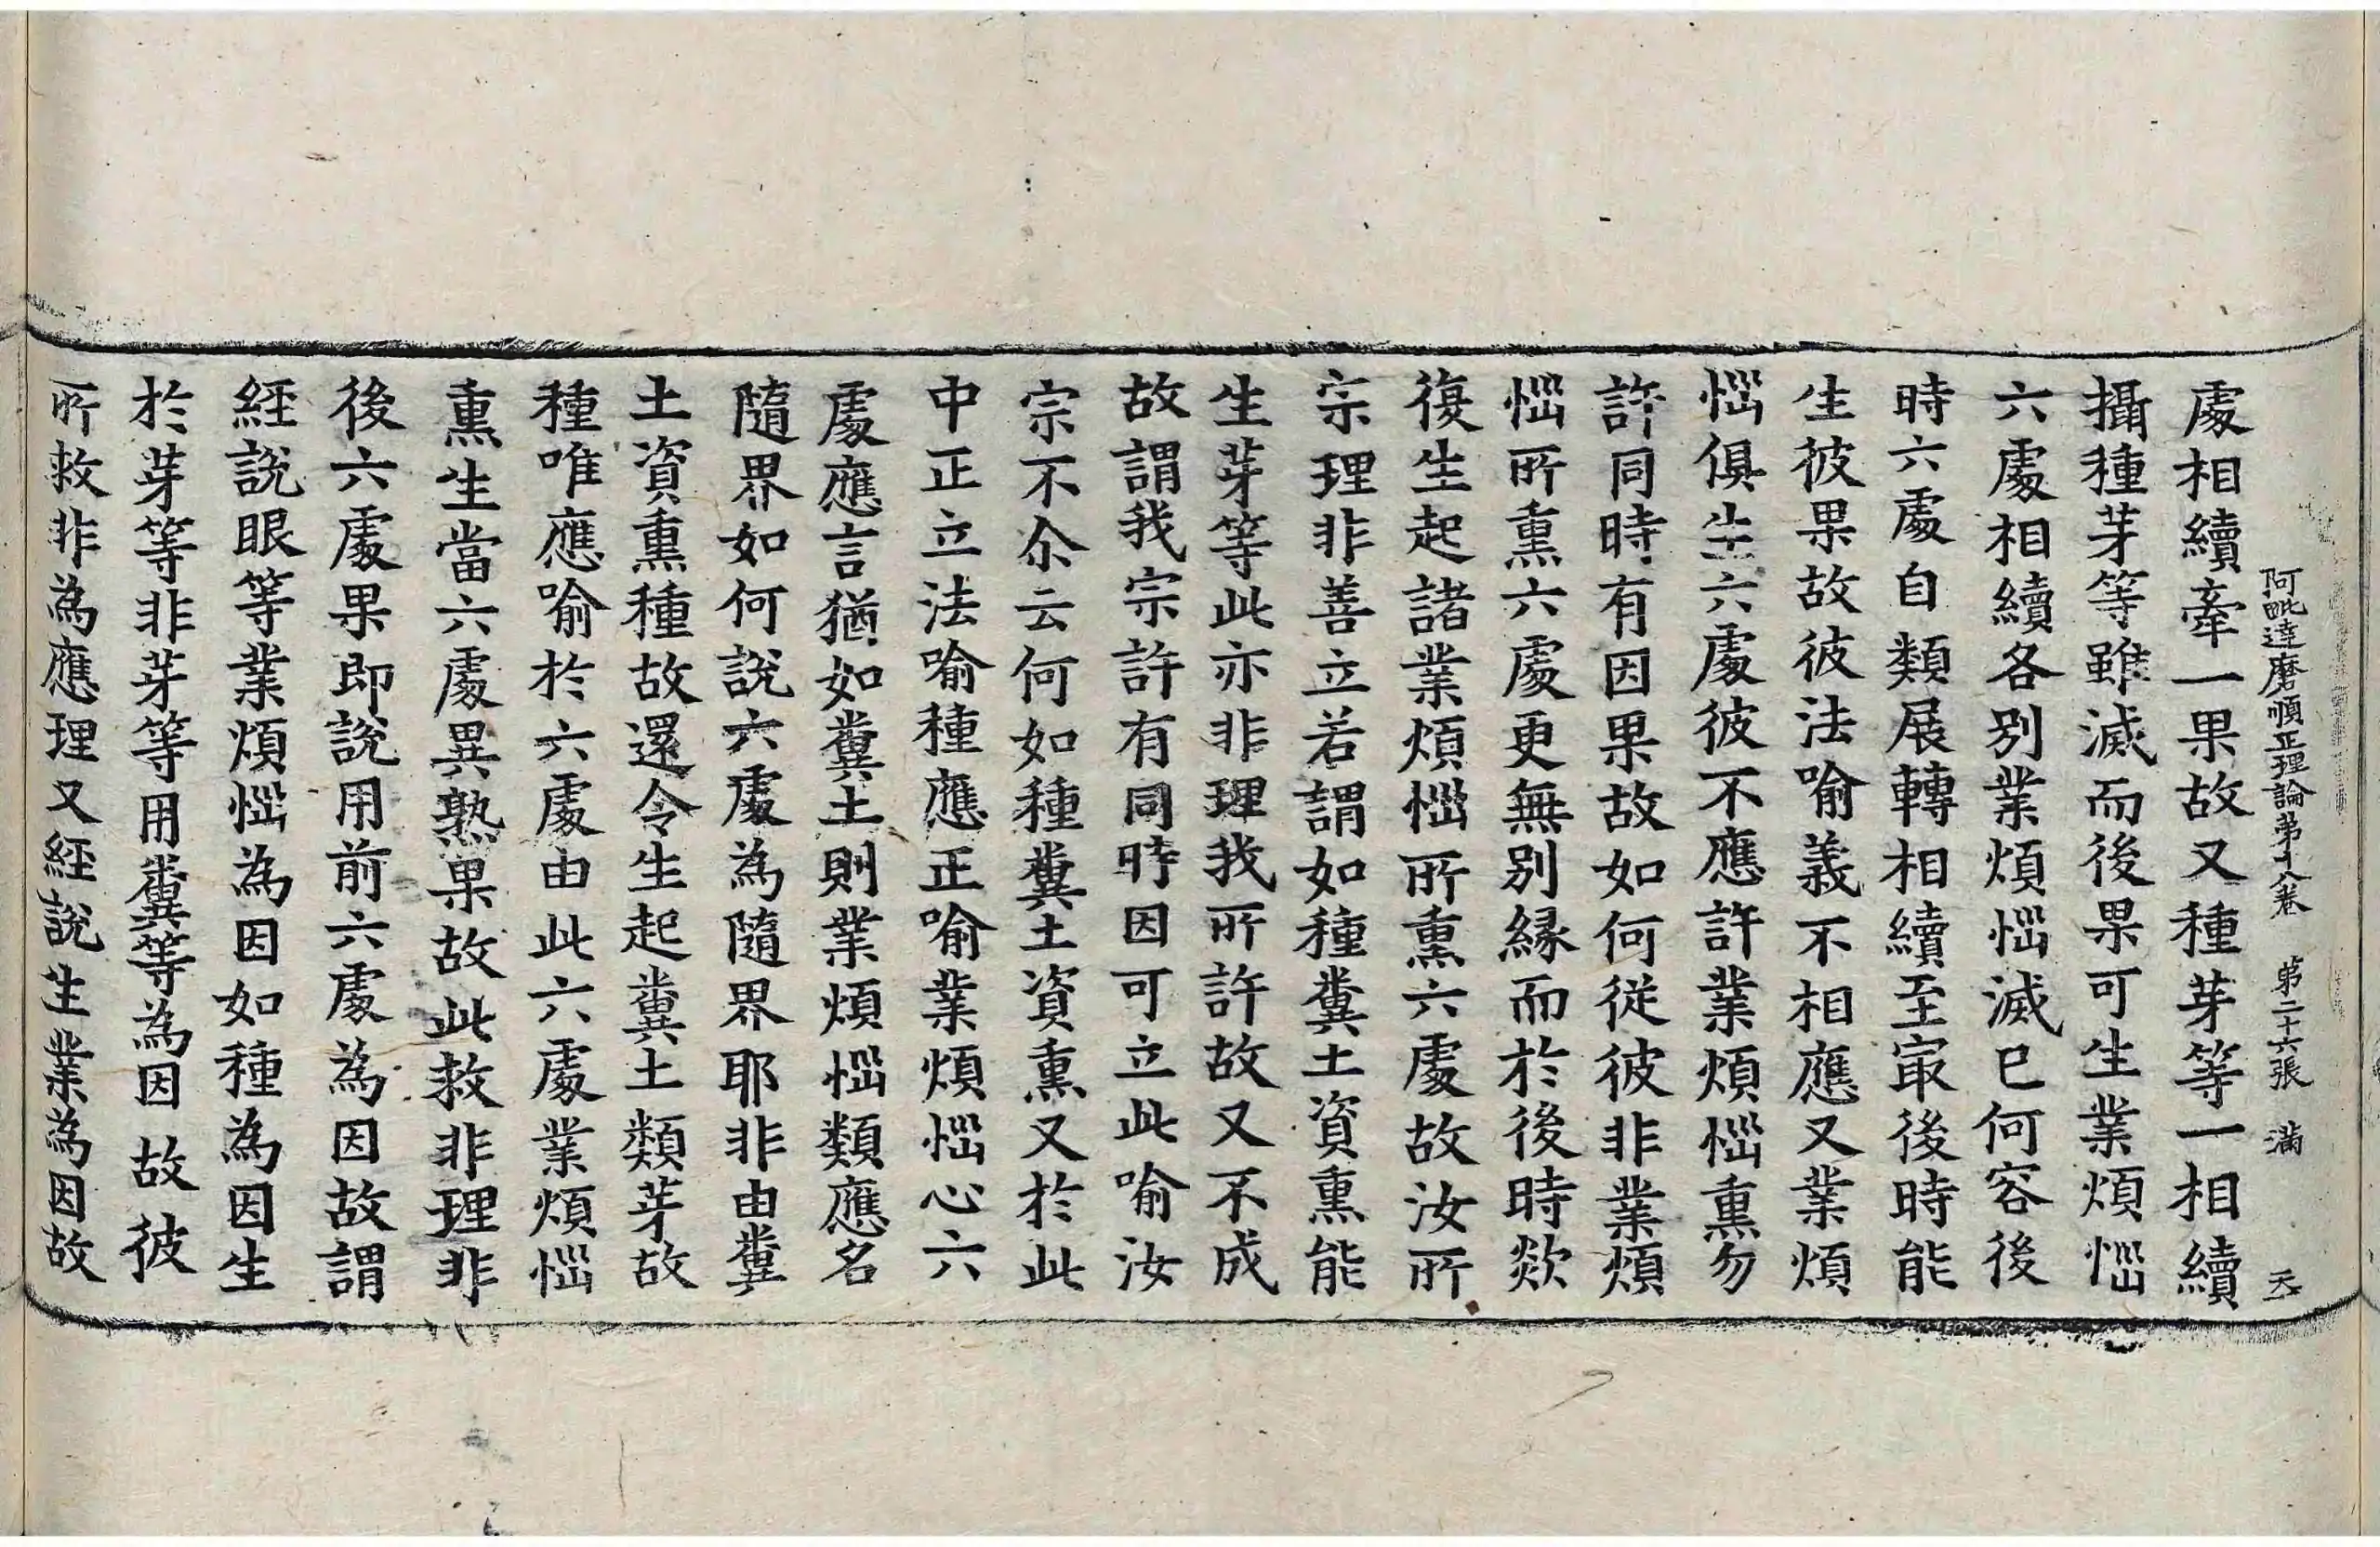 阿毗達磨順正理論第十八卷　第二十六張　滿　天
處相續牽一果故又種芽等一相續
攝種芽等雖滅而後果可生業煩惱
六處相續各別業煩惱滅已何容後
時六處自類展轉相續至冣後時能
生彼果故彼法喻義不相應又業煩
惱俱生六處彼不應許業煩惱熏勿
許同時有因果故如何從彼非業煩
惱所熏六處更無別緣而於後時欻
復生起諸業煩惱所熏六處故汝所
宗理非善立若謂如種糞土資熏能
生芽等此亦非理我所許故又不成
故謂我宗許有同時因可立此喻汝
宗不尒云何如種糞土資熏又於此
中正立法喻種應正喻業煩惱心六
處應言猶如糞土則業煩惱類應名
隨界如何說六處為隨界耶非由糞
土資熏種故還令生起糞土類芽故
種唯應喻於六處由此六處業煩惱
熏生當六處異熟果故此救非理非
後六處果即說用前六處為因故謂
經說眼等業煩惱為因如種為因生
於芽等非芽等用糞等為因故彼
所救非為應理又經說生業為因故